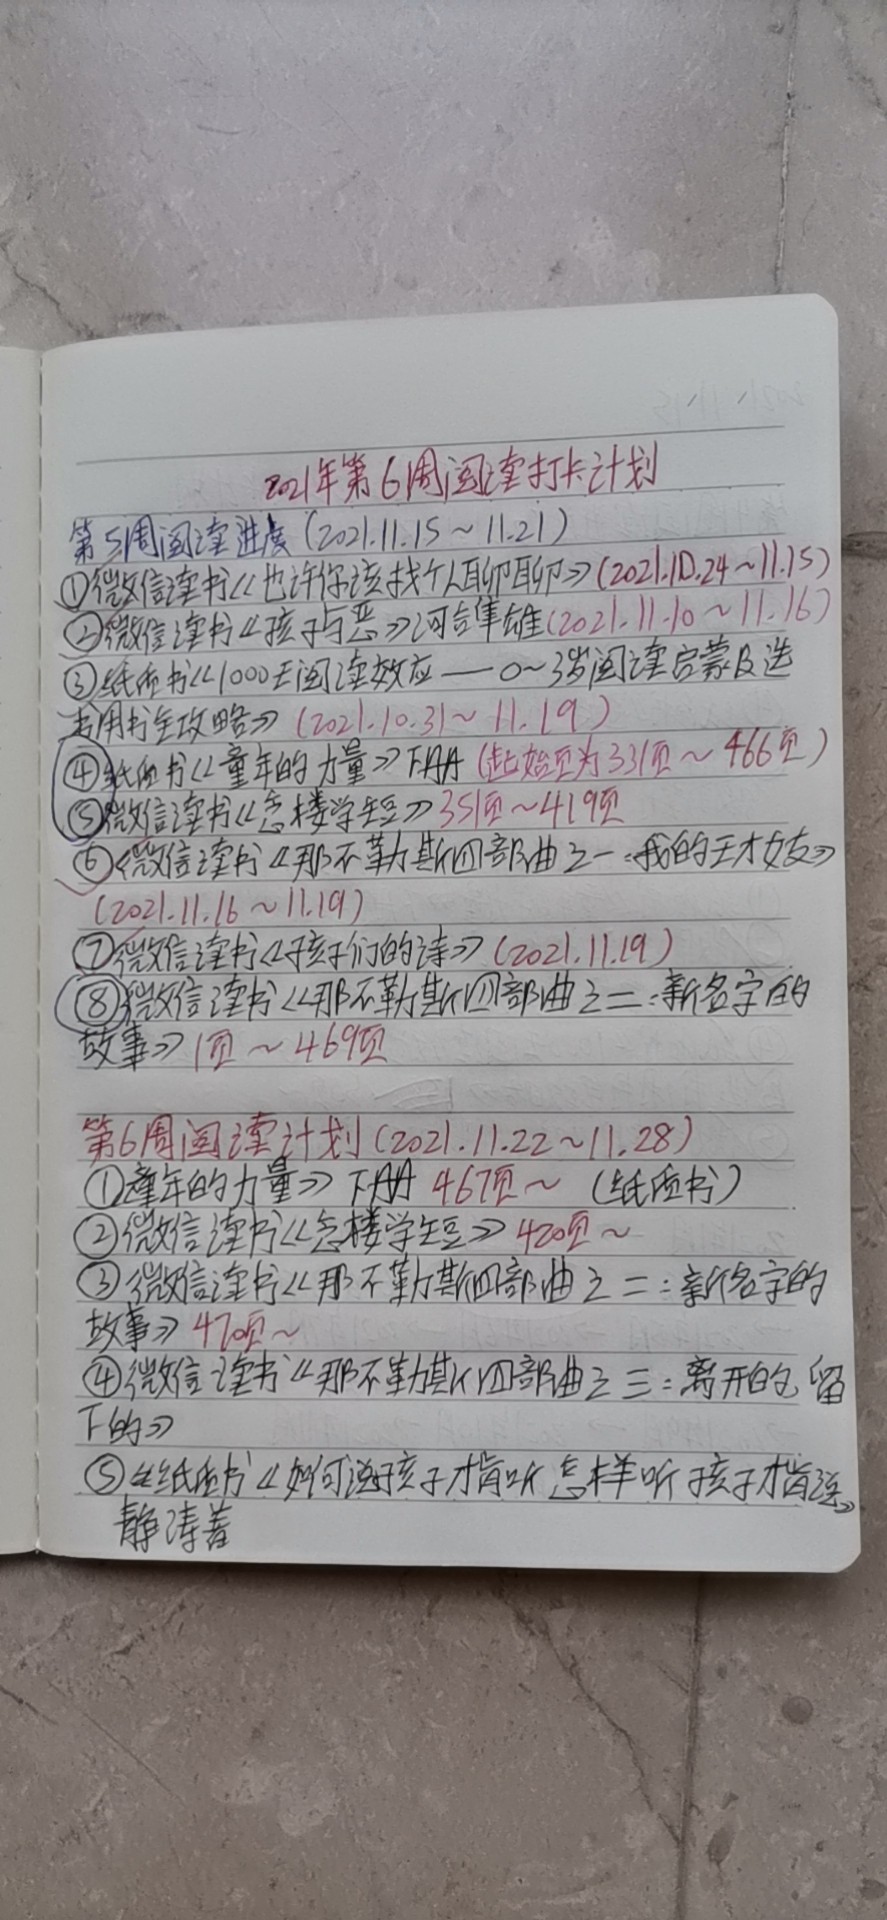 2021年第6周阅读打卡计划
第5周阅读进度(2021.11.15~11.21)
①微信读书《也许你该找个人聊聊》(2021.10.24~11.15)
②微信读书《孩子与恶》河合隼雄(2021.11.10~11.16)
③纸质书《1000天阅读效应——0~3岁阅读启蒙及选
书用书全攻略》(2021.10.31~11.19)
④纸质书《童年的力量》下册(起始页为331页~466页)
⑤微信读书《怎楼学生豆》351页~419页
⑥微信读书《那不勒斯四部曲之一:我的天才女友》
(2021.11.16~11.19)
⑦微信读书《孩子们的诗》(2021.11.19)
⑧微信读书《那不勒斯四部曲之二:新名字的
故事》1页~469页
第6周阅读计划(2021.11.22~11.28)
①童年的力量》下册 467页~ (纸质书)
②微信读书《怎楼学生豆》420页~
③微信读书《那不勒斯四部曲之二:新名字的
故事》470页~
④微信读书《那不勒斯四部曲之三:离开的,留
下的》
⑤纸质书《如何说孩子才肯听 怎样听孩子才肯说》
静涛著